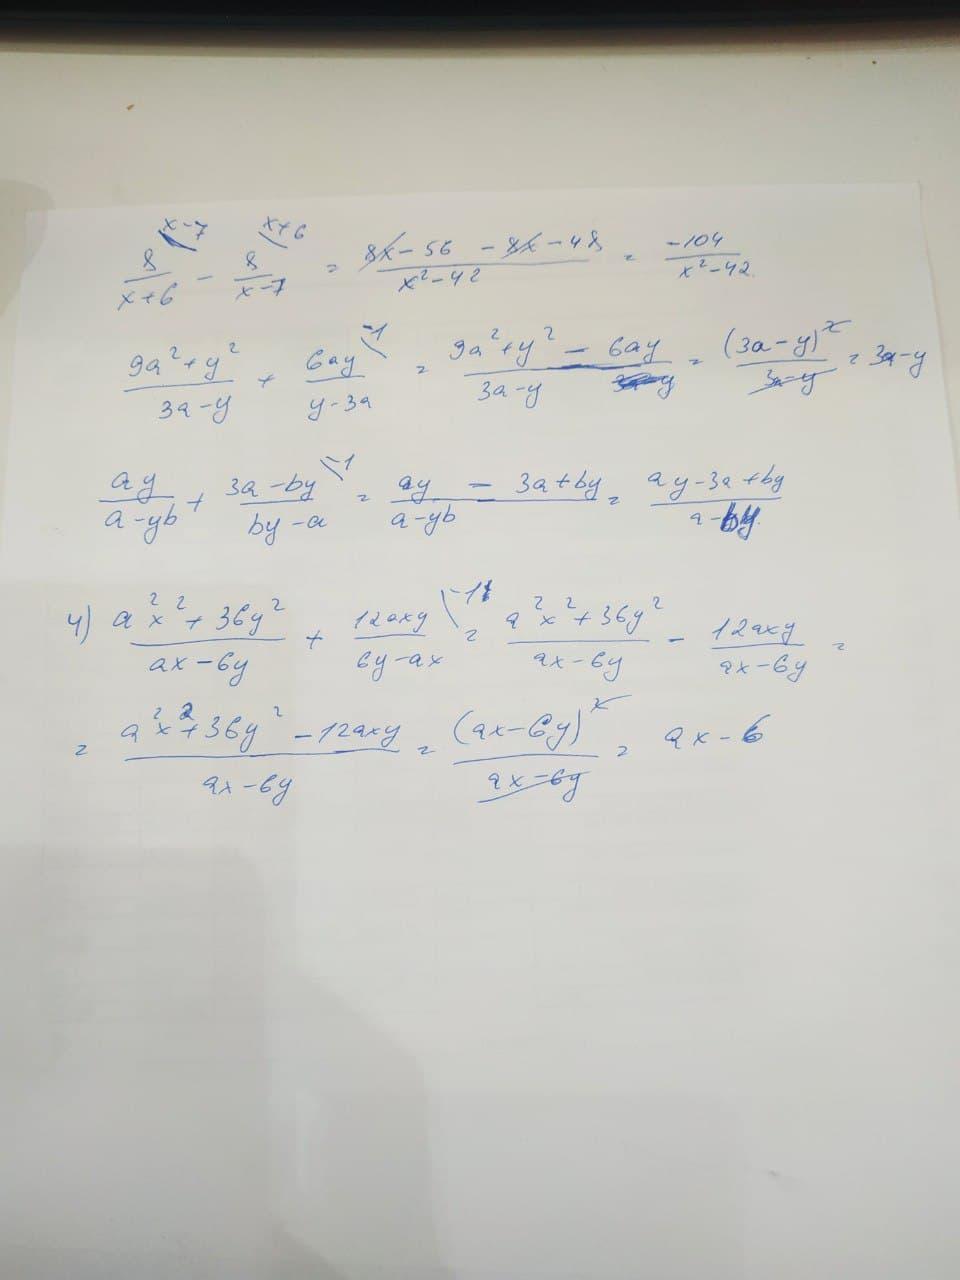 8/(x+6) ^(x-7) - 8/(x-7) ^(x+6) = (8x - 56 - 8x - 48)/(x² - 42) = -104/(x² - 42)
(9a² + y²)/(3a - y) + 6ay/(y - 3a) ^(-1) = (9a² + y² - 6ay)/(3a - y) = (3a - y)²/(3a - y) = 3a - y
ay/(a - yb) + (3a - by)/(by - a) ^(-1) = (ay - 3a + by)/(a - yb) = (ay - 3a + by)/(a - by)
4) (a²x² + 36y²)/(ax - 6y) + 12axy/(6y - ax) ^(-1) = (a²x² + 36y²)/(ax - 6y) - 12axy/(ax - 6y) =
= (a²x² + 36y² - 12axy)/(ax - 6y) = (ax - 6y)²/(ax - 6y) = ax - 6